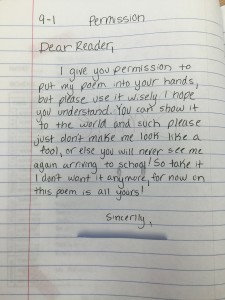 9-1 Permission
Dear Reader,
I give you permission to
put my poem into your hands,
but please use it wisely I hope
you understand. You can show it
to the world and such please
just don't make me look like a
tool, or else you will never see me
again arriving to school! So take it
I don't want it anymore, for now on
this poem is all yours!
Sincerlly,